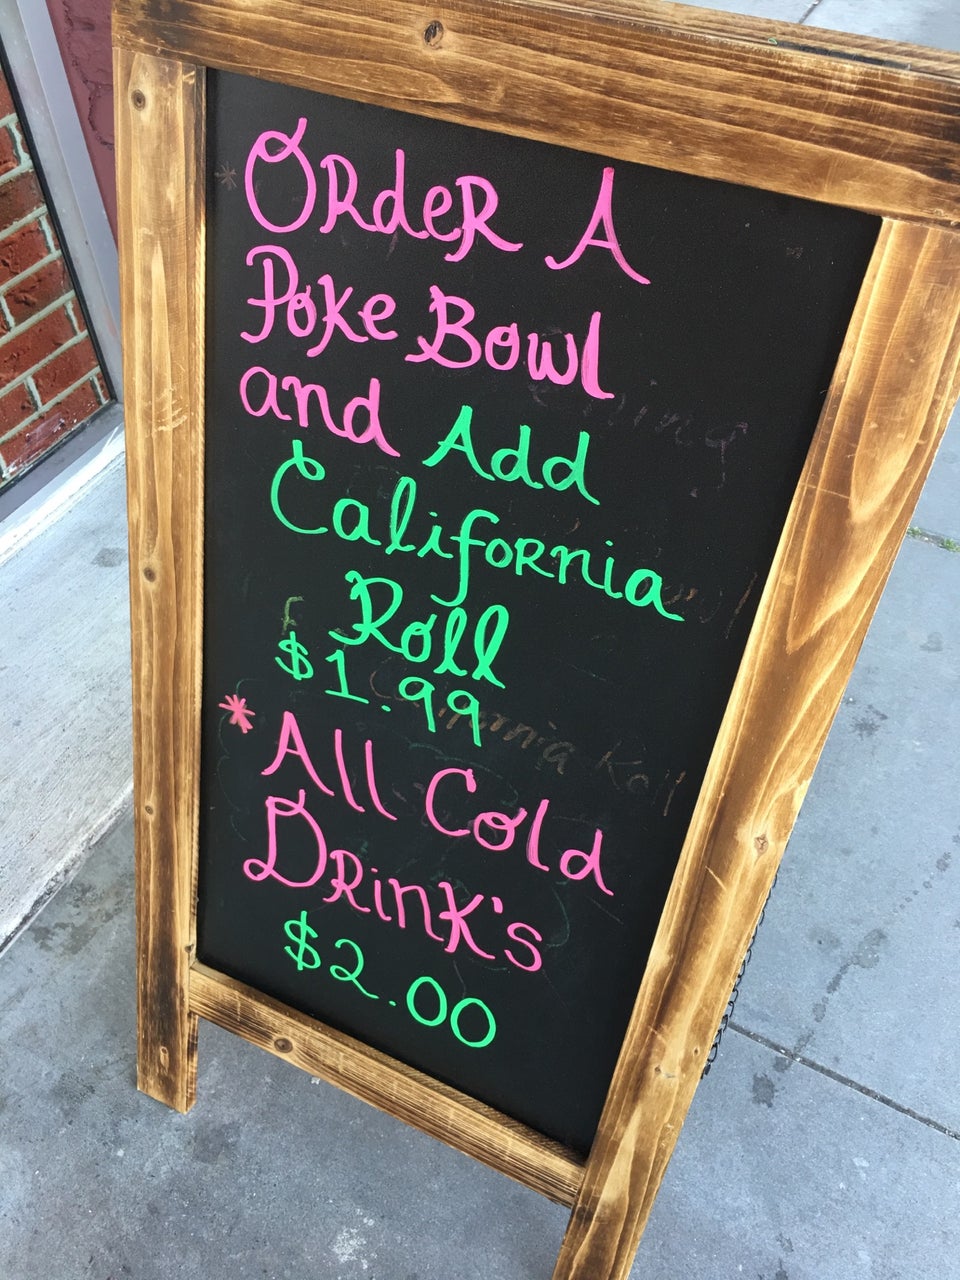 Order A
Poke Bowl
and Add
California
Roll
$1.99
* All Cold
Drink's
$2.00